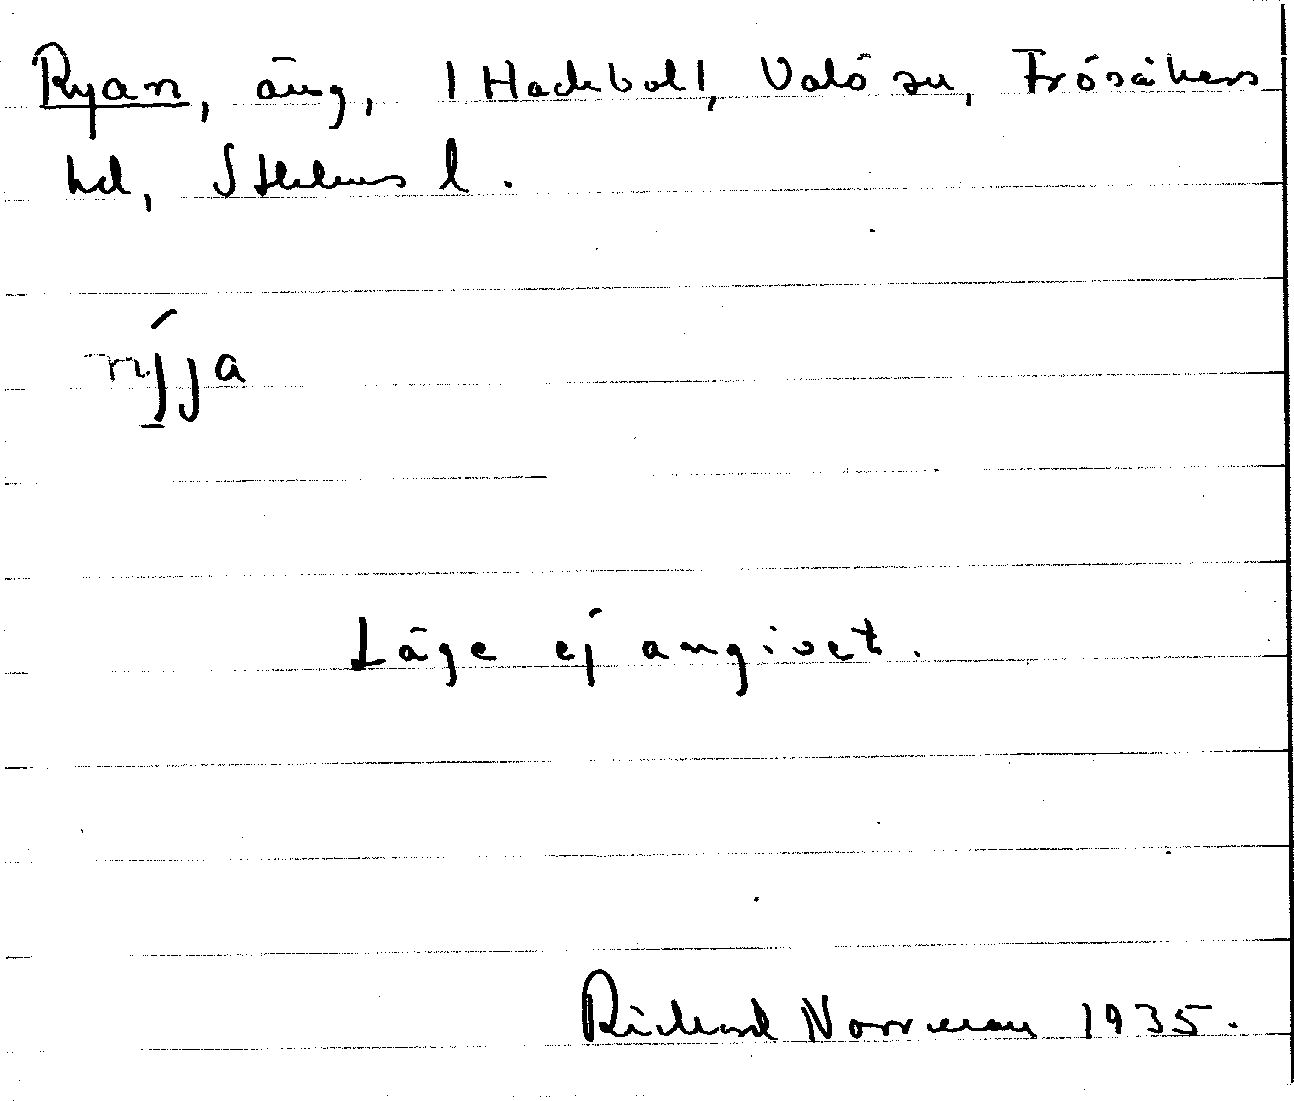 Ryan, äng, 1 Hackboll, Valö sn, Frösåkers
hd, Sthlms l.
rýja
Läge ej angivet.
Richard Norrman 1935.